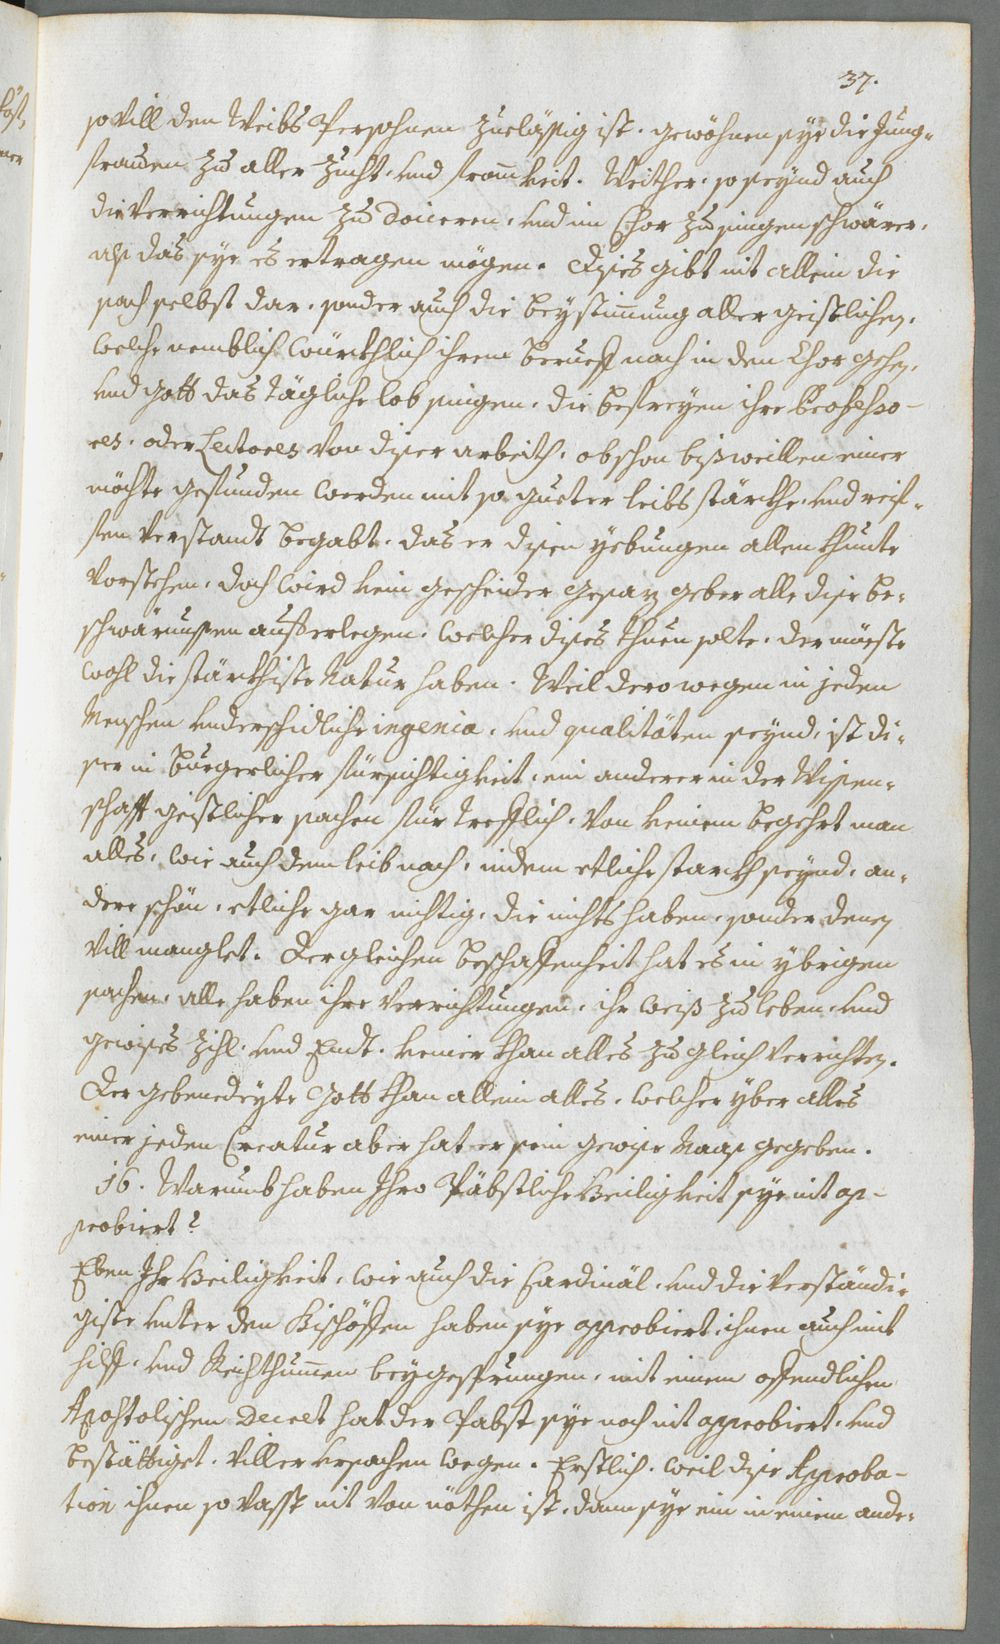 37.
so vill den Weibs Persohnen zuelässig ist. gewöhnen sye die Jung-
frauen zu aller Zucht, und frommkeit. Weither, so seynd auch
die verrichtungen zu dociren, und im Chor zu singen schwärer,
als das sye es ertragen mögen. Dises gibt nit allein die
sach selbst dar, sonder auch die beystimmung aller geistlichen,
welche nemblich würkhlich ihrem beruoff nach in den Chor gehen,
und Gott das tägliche lob singen, die befreyen ihre Professo-
res, oder Lectores von diser arbeith, obschon bisweillen einer
möchte gefunden werden mit so gueter leibs stärkhe, und reif-
fen verstandt begabt, das er disen yebungen allen khunte
vorstehen, doch wird kein gescheider gesaz geber alle dise be-
schwärnussen aufferlegen, welcher dises thuen solte, der müeste
wohl die stärkhiste Natur haben. Weil derowegen in jeden
Menschen underschidliche ingenia, und qualitäten seynd, ist di-
ser in burgerlicher fürsichtigkeit, ein anderer in der Wissen-
schafft geistlicher sachen fürtrefflich, von keinem begehrt man
alles, wie auch dem leib nach, indem etliche starckh seynd, an-
dere schön, etliche gar nichtig, die nichts haben, sonder denen
vill manglet. Dergleichen beschaffenheit hat es in ybrigen
sachen, alle haben ihre verrichtungen, ihr weiß zu leben, und
gewises zihl, und Endt, keiner khan alles zu gleich verrichten.
Der gebenedeyte Gott khan allein alles, welcher yber alles
einer jeden Creatur aber hat er sein gewise Maas gegeben.
16. Warumb haben Ihro Päbstliche Heiligkeit sye nit ap-
probiert?
Eben Ihr Heiligkeit, wie auch die Cardinäl, und die verständi-
giste unter den Bischöffen haben sye approbiert, ihnen auch mit
hilff, und Reichthummen beygesprungen, mit einem offendlichen
Apostolischen Decret hat der Pabst sye noch nit approbiert, und
bestättiget, viller ursachen wegen. Erstlich, weil dise Approba-
tion ihnen so vasst nit von nöthen ist, dann sye ein in einem ande-